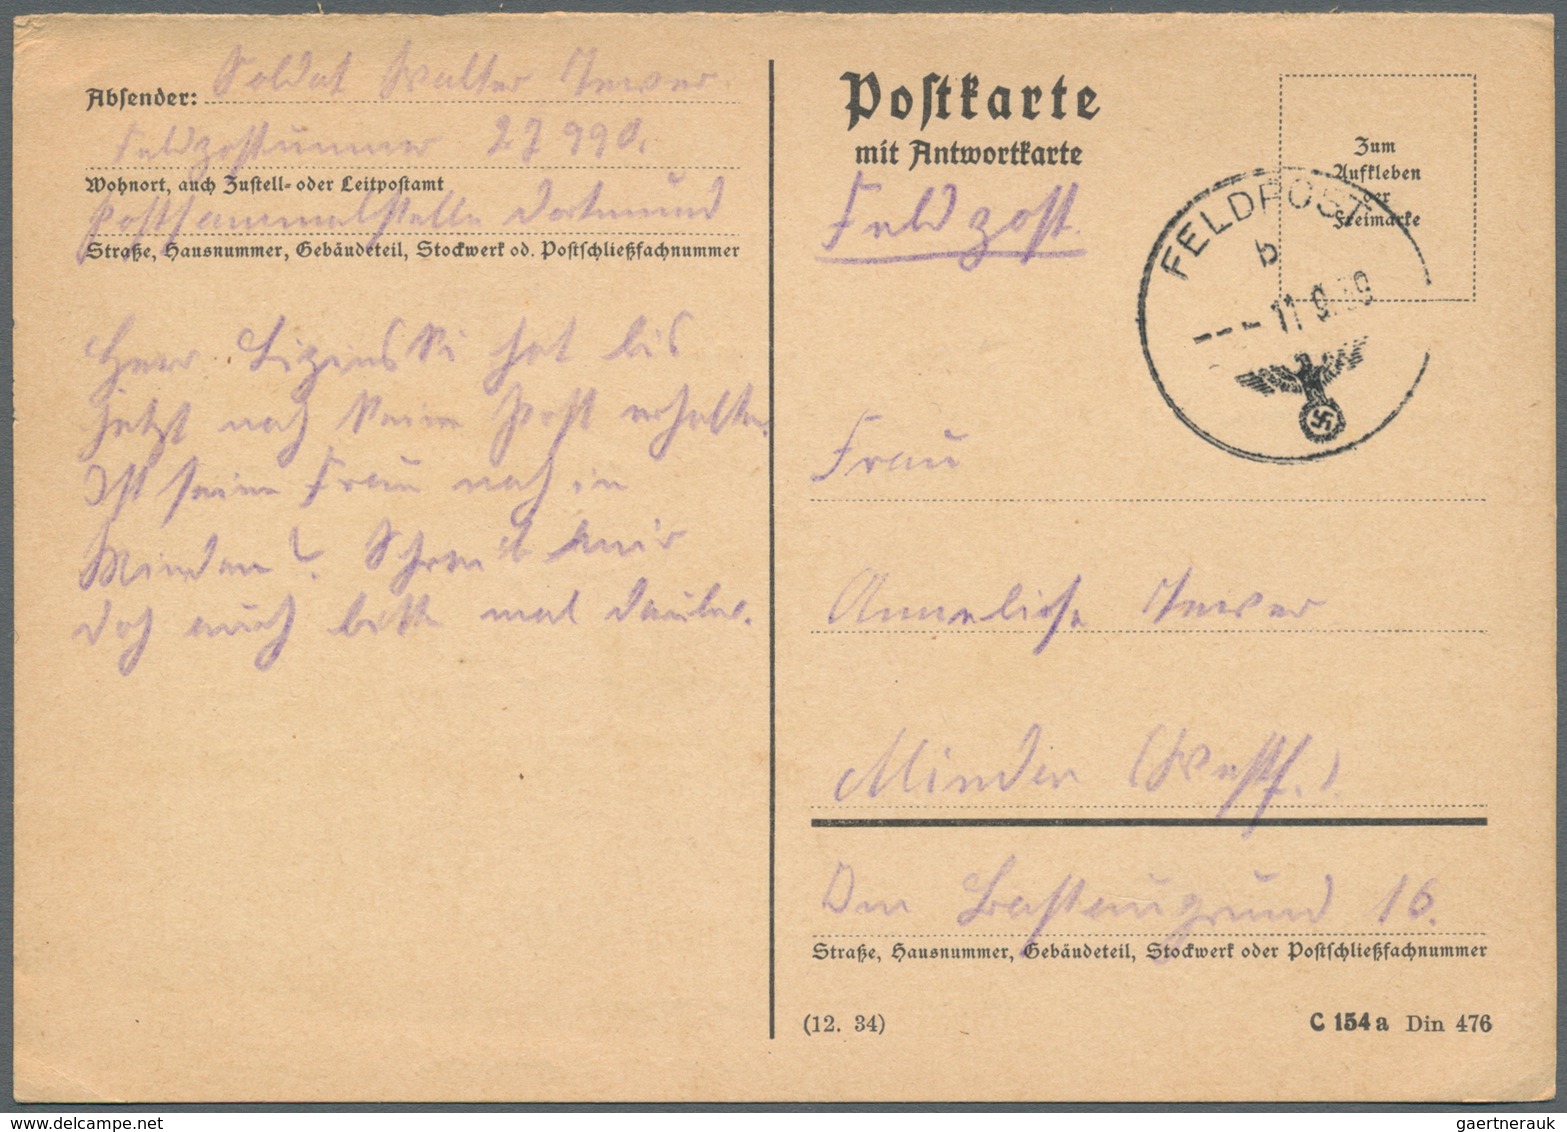 Absender: Soldat Walter
Feldpostnummer 27990.
Wohnort, auch Zustell- oder Leitpostamt
Postsammelstelle Dortmund
Straße, Hausnummer, Gebäudeteil, Stockwerk od. Postschließfachnummer
Herr hat bis
jetzt noch keine Post erhalten.
Ist seine Frau noch in
Minden? Schreib mir
doch auch bitte mal
Postkarte
mit Antwortkarte
Feldpost
Zum
Aufkleben
der
Freimarke
FELDPOST
b
--- 11.9.39
Frau
Anneliese
Minden (Westf.).
Am Bastaugrund 16.
Straße, Hausnummer, Gebäudeteil, Stockwerk oder Postschließfachnummer
(12. 34)
C 154 a Din 476
gaertnerauk